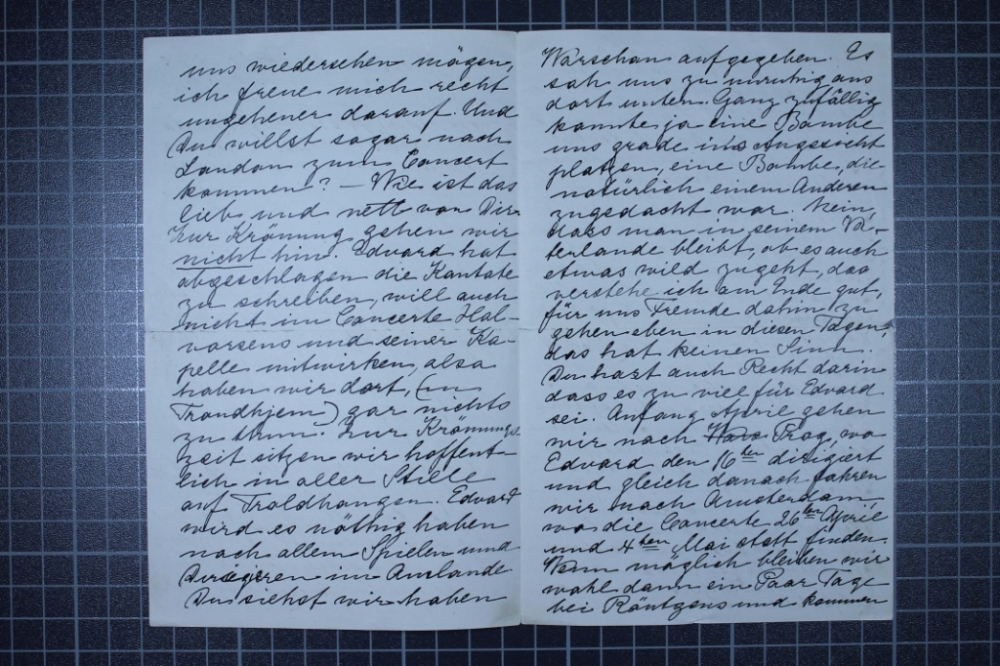 uns wiedersehen mögen,
ich freue mich recht
ungeheuer darauf. Und
Du willst sogar nach
London zum Concert
kommen? – Wie ist das
lieb und nett von Dir.
Zur Krönung gehen wir
nicht hin. Edvard hat
abgeschlagen die Kantate
zu schreiben, will auch
nicht im Concerte Hal-
vorsens und seiner Ka-
pelle mitwirken, also
haben wir dort, (in
Trondhjem) gar nichts
zu thun. Zur Krönungs
zeit sitzen wir hoffent-
lich in aller Stille
auf Troldhaugen. Edvard
wird es nöthig haben
nach allem Spielen und
Dirigieren im Auslande
Du siehst wir haben
Warschau aufgegeben. Es
sah uns zu unruhig aus
dort unten. Ganz zufällig
konnte ja eine Bombe
uns grade ins Angesicht
platzen, eine Bombe, die
natürlich einem Anderen
zugedacht war. Nein,
dass man in seinem Va-
terlande bleibt, ob es auch
etwas wild zugeht, das
verstehe ich am Ende gut,
für uns Fremde dahin zu
gehen eben in diesen Tagen,
das hat keinen Sinn.
Du hast auch Recht darin
dass es zu viel für Edvard
sei. Anfang April gehen
wir nach Prag, wo
Edvard den 16ten dirigiert
und gleich danach fahren
wir nach Amsterdam,
wo die Concerte 26ten April
und 4ten Mai statt finden.
Wenn möglich bleiben wir
wohl dann ein Paar Tage
bei Röntgens und kommen